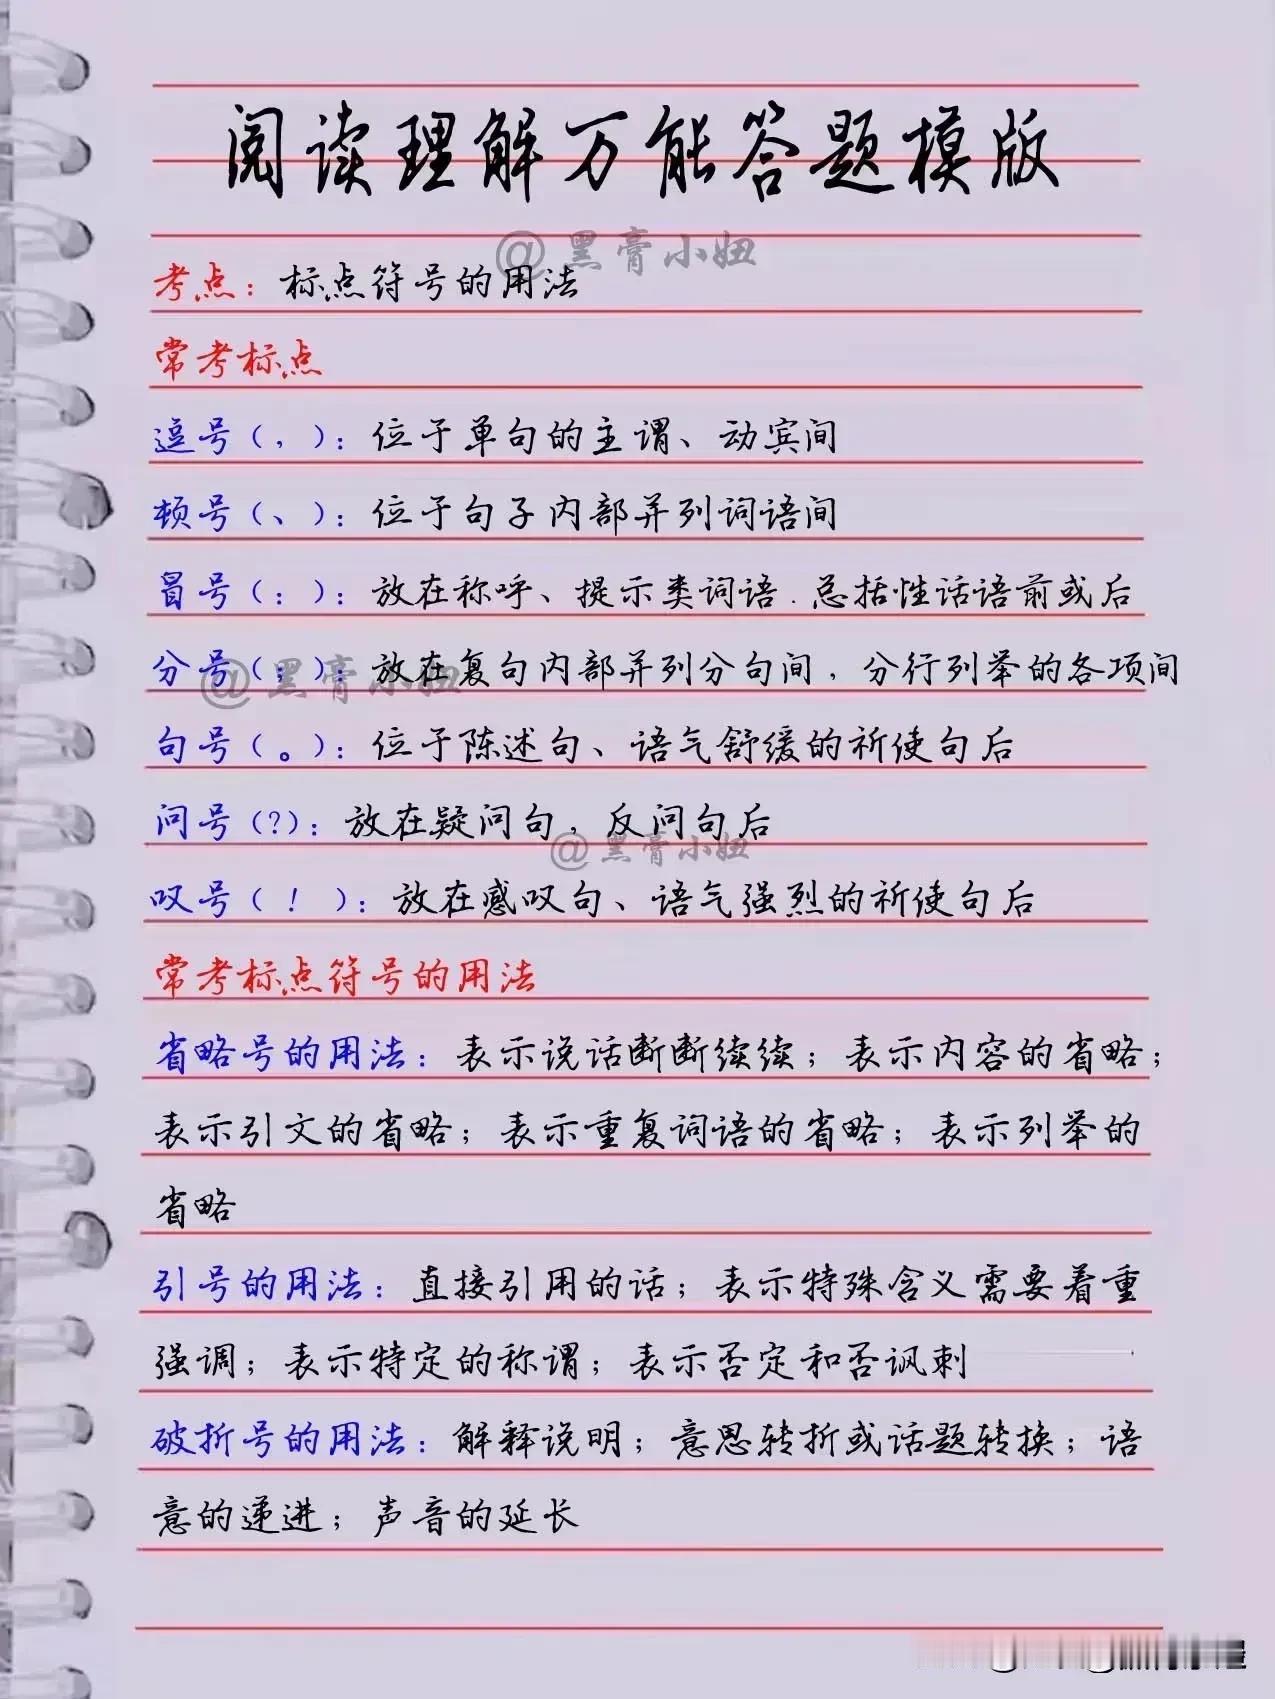 阅读理解万能答题模版
@黑膏小妞
考点：标点符号的用法
常考标点
逗号（，）：位于单句的主谓、动宾间
顿号（、）：位于句子内部并列词语间
冒号（：）：放在称呼、提示类词语.总括性话语前或后
分号（；）：放在复句内部并列分句间，分行列举的各项间
@黑膏小妞
句号（。）：位于陈述句、语气舒缓的祈使句后
问号（?）：放在疑问句，反问句后
@黑膏小妞
叹号（！）：放在感叹句、语气强烈的祈使句后
常考标点符号的用法
省略号的用法：表示说话断断续续；表示内容的省略；
表示引文的省略；表示重复词语的省略；表示列举的
省略
引号的用法：直接引用的话；表示特殊含义需要着重
强调；表示特定的称谓；表示否定和否讽刺
破折号的用法：解释说明；意思转折或话题转换；语
意的递进；声音的延长